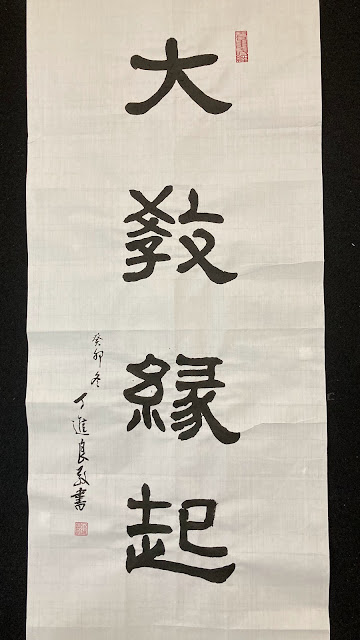 大教緣起
癸卯冬
丁進良敬書